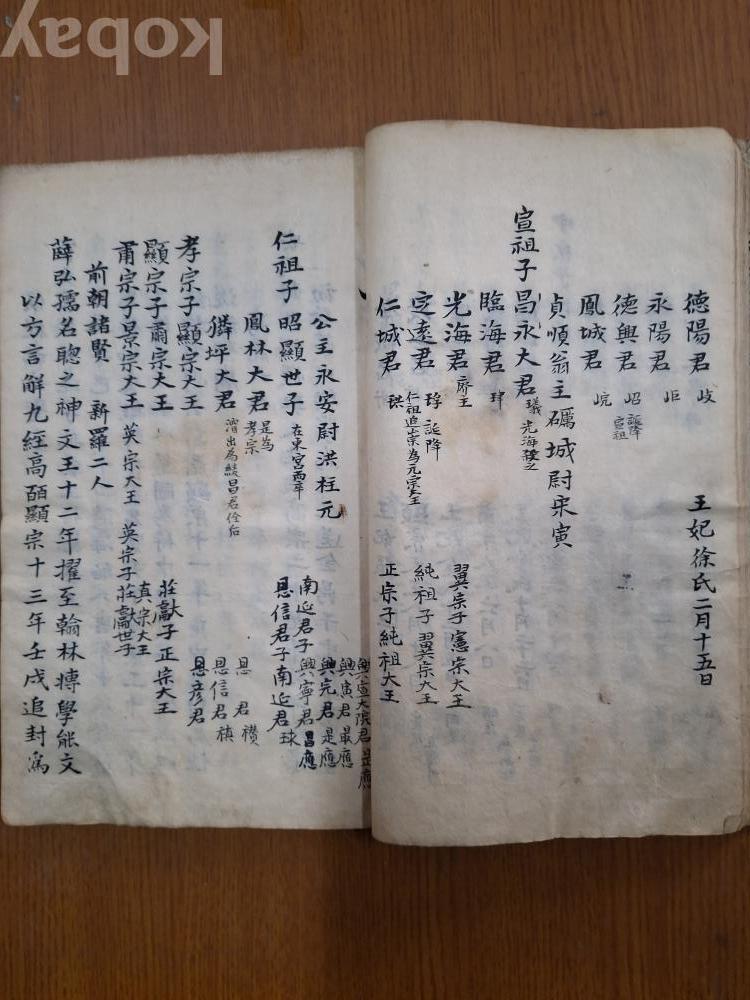 kobay
德陽君 岐 王妃徐氏二月十五日
永陽君 岠
德興君 昭 誕降宣祖
鳳城君 岏
貞順翁主礪城尉宋寅
宣祖子昌永大君 㼁 光海殺之
臨海君 珒
光海君 廢王 翼宗子憲宗大王
定遠君 琈 誕降仁祖追崇為元宗大王 純祖子翼宗大王
仁城君 珙 正宗子純祖大王
公主永安尉洪柱元
仁祖子昭顯世子 在東宮而卒
鳳林大君 是為孝宗
麟坪大君 㴭出為綾昌君佺后
孝宗子顯宗大王
顯宗子肅宗大王
肅宗子景宗大王 英宗大王 英宗子莊獻世子 真宗大王
莊獻子正宗大王
恩彦君
恩信君禛
恩 君禶
恩信君子南延君球
南延君子興寧君昌應
興完君是應
興寅君最應
興宣大院君是應
前朝諸賢 新羅二人
薛弘儒名聰之神文王十二年擢至翰林博學能文
以方言解九經高麗顯宗十三年壬戌追封為